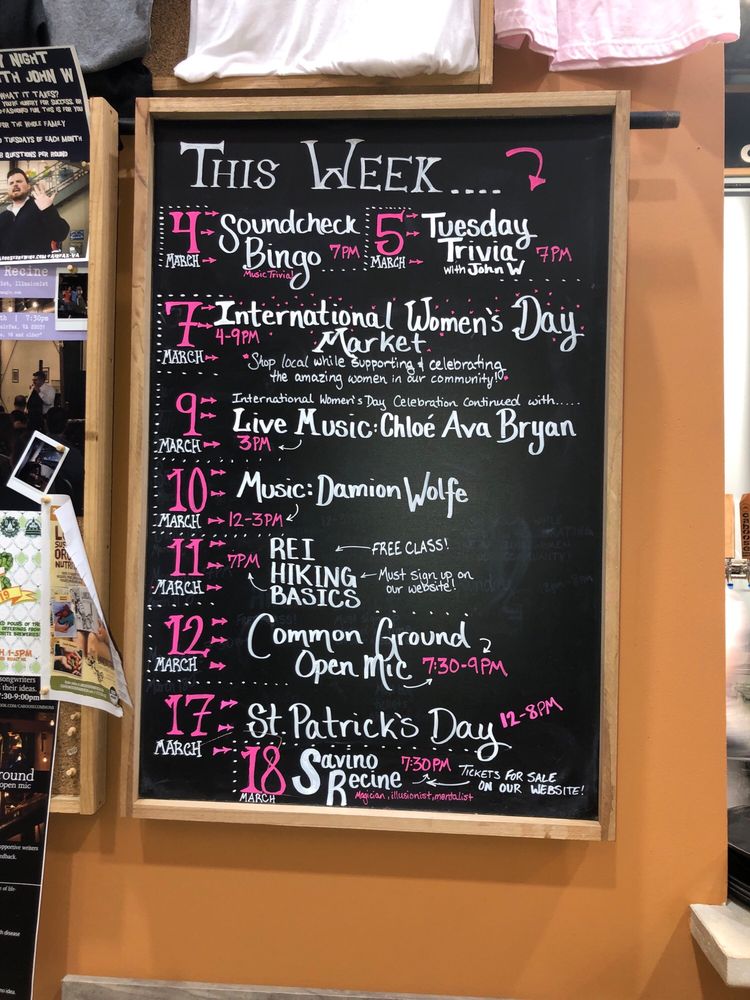 Y NIGHT
WITH JOHN W
WHAT IT TAKES?
FOR THE WHOLE FAMILY
TUESDAYS OF EACH MONTH
QUESTIONS PER ROUND
Recine
Illusionist
7:30pm
THIS WEEK....
4 MARCH
Soundcheck
Bingo 7PM
Music Trivia!
5 MARCH
Tuesday
Trivia 7PM
with John W
7 MARCH
International Women's Day
4-9PM Market
Shop local while supporting & celebrating
the amazing women in our community!
9 MARCH
International Women's Day Celebration continued with.....
Live Music: Chloé Ava Bryan
3PM
10 MARCH
Music: Damion Wolfe
12-3PM
11 MARCH
7PM REI FREE CLASS!
HIKING Must sign up on
BASICS our website!
12 MARCH
Common Ground
Open Mic 7:30-9PM
17 MARCH
St. Patrick's Day 12-8PM
18 MARCH
Savino 7:30PM
Recine TICKETS FOR SALE
ON OUR WEBSITE!
Magician, illusionist, mentalist
songwriters
their ideas.
7:30-9:00pm
round
open mic
supportive writers